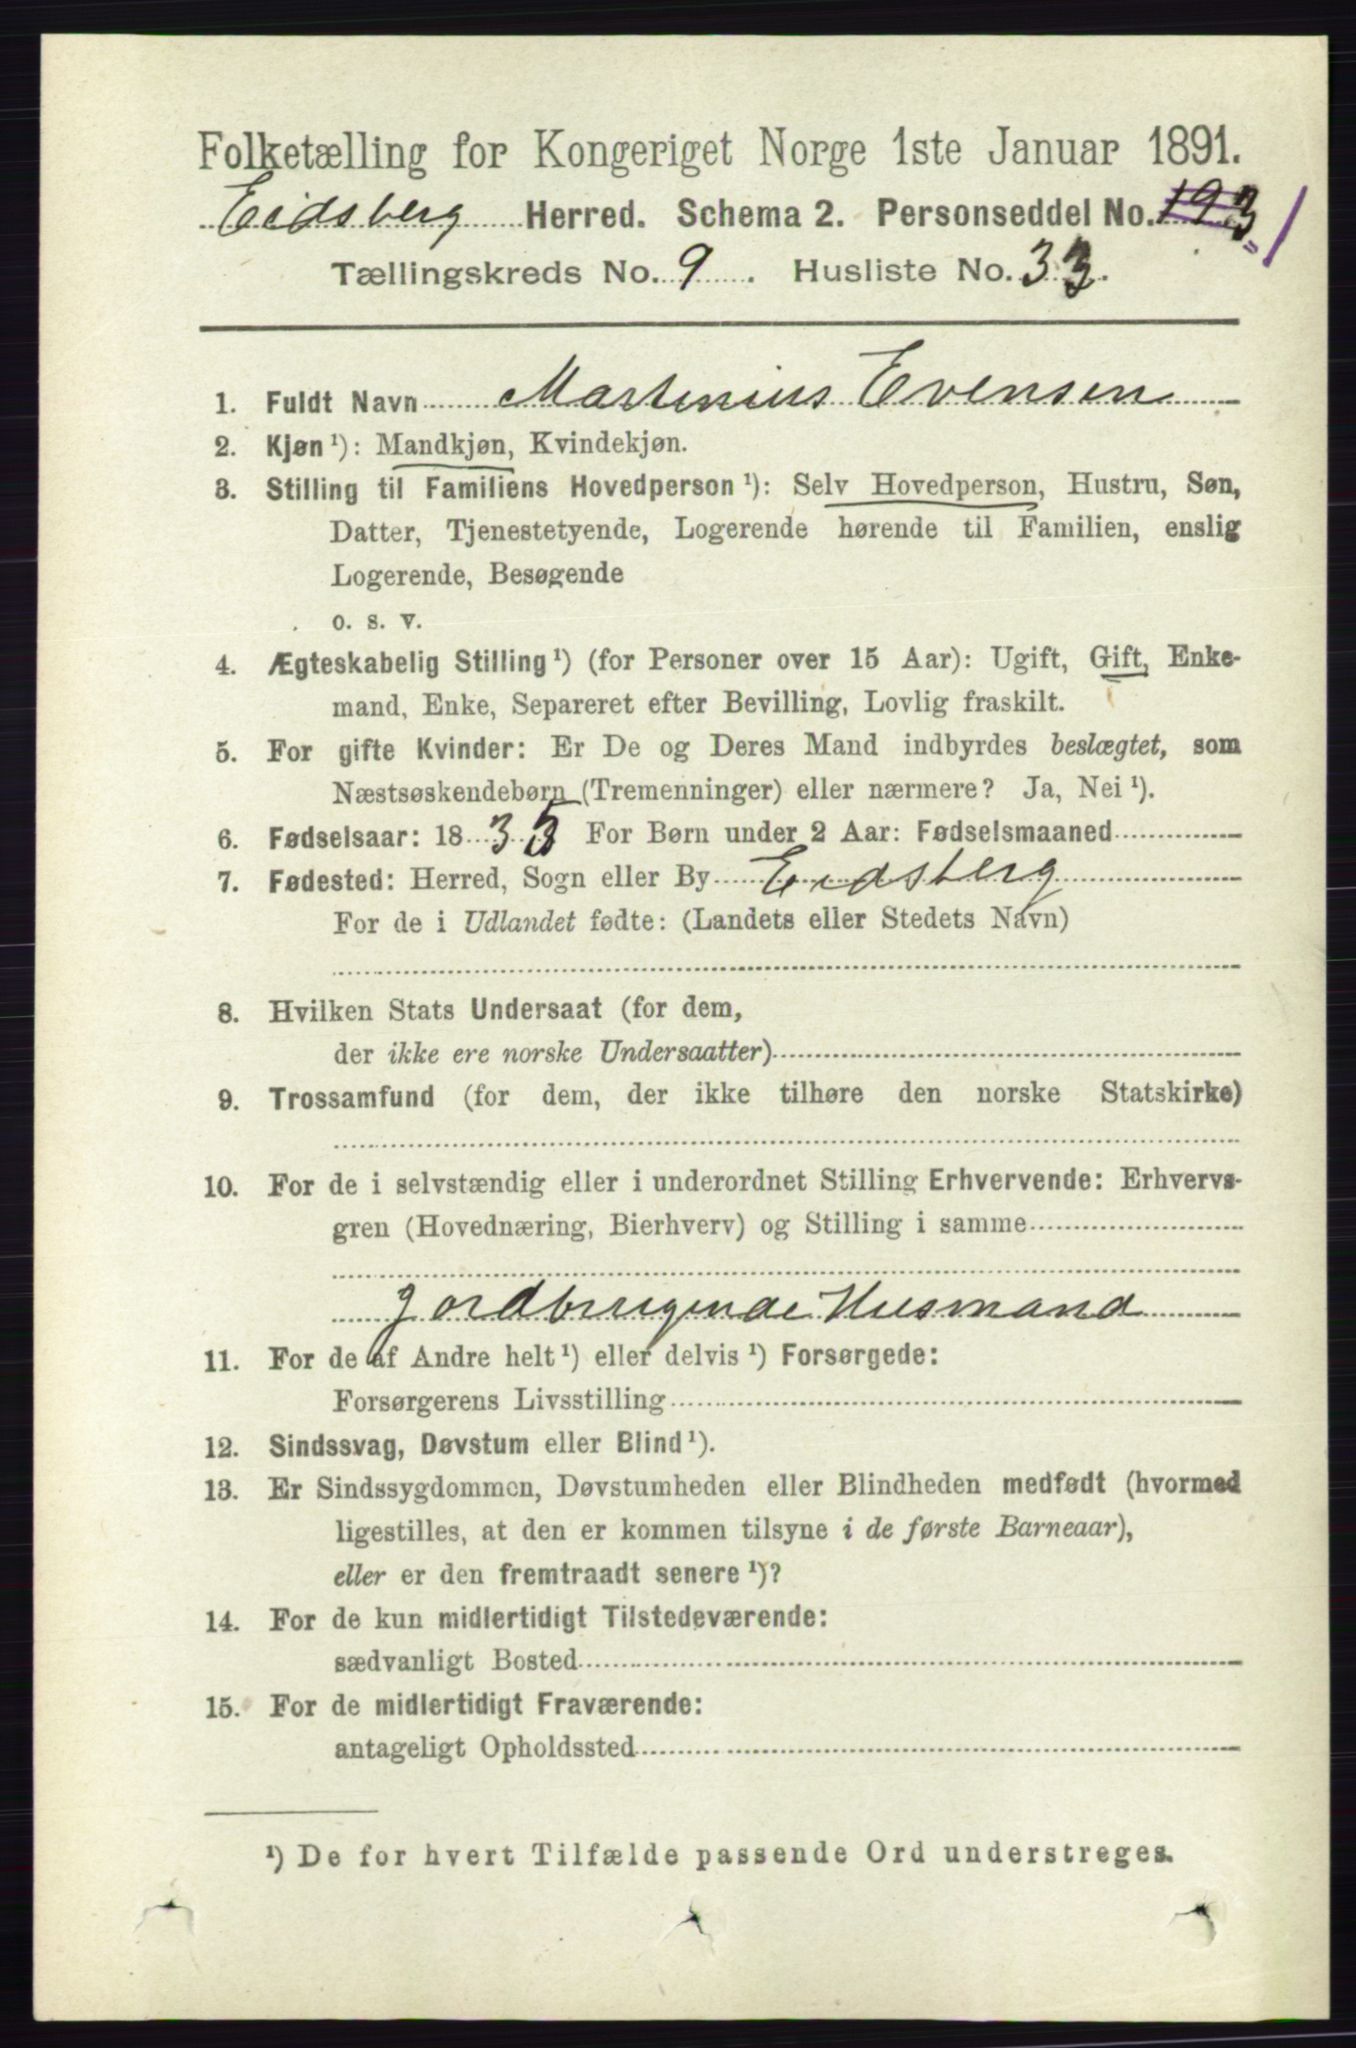 Folketælling for Kongeriget Norge 1ste Januar 1891.
Eidsberg Herred. Schema 2. Personseddel No. 193 1
Tællingskreds No. 9. Husliste No. 33.
1. Fuldt Navn Martinius Evensen
2. Kjøn ¹): Mandkjøn, Kvindekjøn.
3. Stilling til Familiens Hovedperson ¹): Selv Hovedperson, Hustru, Søn,
Datter, Tjenestetyende, Logerende hørende til Familien, enslig
Logerende, Besøgende
o. s. v.
4. Ægteskabelig Stilling ¹) (for Personer over 15 Aar): Ugift, Gift, Enke-
mand, Enke, Separeret efter Bevilling, Lovlig fraskilt.
5. For gifte Kvinder: Er De og Deres Mand indbyrdes beslægtet, som
Næstsøskendebørn (Tremenninger) eller nærmere? Ja, Nei ¹).
6. Fødselsaar: 18 35 For Børn under 2 Aar: Fødselsmaaned
7. Fødested: Herred, Sogn eller By Eidsberg
For de i Udlandet fødte: (Landets eller Stedets Navn)
8. Hvilken Stats Undersaat (for dem,
der ikke ere norske Undersaatter)
9. Trossamfund (for dem, der ikke tilhøre den norske Statskirke)
10. For de i selvstændig eller i underordnet Stilling Erhvervende: Erhvervs-
gren (Hovednæring, Bierhverv) og Stilling i samme
Jordbrugende Husmand
11. For de af Andre helt ¹) eller delvis ¹) Forsørgede:
Forsørgerens Livsstilling
12. Sindssvag, Døvstum eller Blind ¹).
13. Er Sindssygdommen, Døvstumheden eller Blindheden medfødt (hvormed
ligestilles, at den er kommen tilsyne i de første Barneaar),
eller er den fremtraadt senere ¹)?
14. For de kun midlertidigt Tilstedeværende:
sædvanligt Bosted
15. For de midlertidigt Fraværende:
antageligt Opholdssted
¹) De for hvert Tilfælde passende Ord understreges.